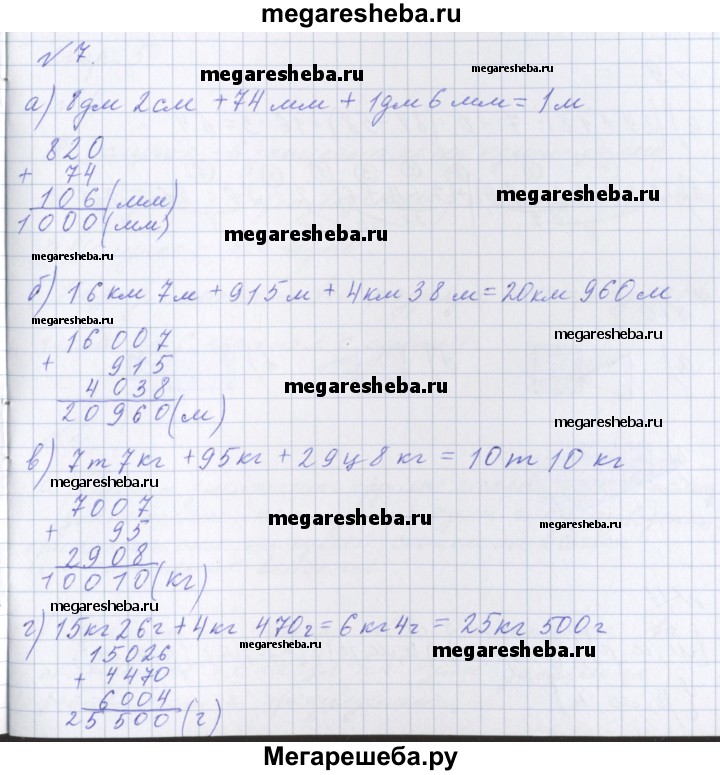 megaresheba.ru
№ 7.
megaresheba.ru
megaresheba.ru
а) 8дм 2см + 74 мм + 1дм 6 мм = 1м
820
+ 74
106 (мм)
1000 (мм)
megaresheba.ru
megaresheba.ru
megaresheba.ru
б) 16 км 7м + 915 м + 4км 38 м = 20км 960м
megaresheba.ru
16 007
+ 915
4 038
20 960 (м)
megaresheba.ru
megaresheba.ru
megaresheba.ru
в) 7т 7кг + 95кг + 29ц 8 кг = 10т 10 кг
megaresheba.ru
7007
+ 95
2908
10010 (кг)
megaresheba.ru
megaresheba.ru
megaresheba.ru
г) 15кг 26г + 4кг 470г = 6 кг 4г = 25кг 500г
megaresheba.ru
megaresheba.ru
15026
+ 4470
6004
25 500 (г)
Мегарешеба.ру